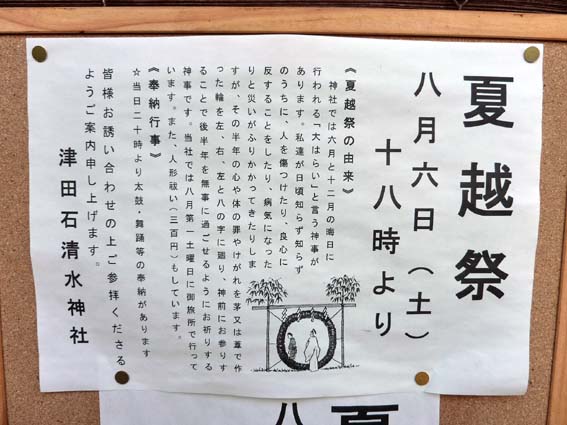 夏越祭
八月六日（土）
十八時より
《夏越祭の由来》
神社では六月と十二月の晦日に
行われる「大はらい」と言う神事が
あります。私達が日頃知らず知らず
のうちに、人を傷つけたり、良心に
反することをしたり、病気になった
りと災いがふりかかってきたりしま
すが、その半年の心や体の罪やけがれを茅又は葦で作
った輪を左、右、左と八の字に廻り、神前にお参りす
ることで後半年を無事に過ごせるようにお祈りする
神事です。当社では八月第一土曜日に御旅所で行って
います。また、人形祓い（三百円）もしています。
《奉納行事》
☆当日二十時より太鼓・舞踊等の奉納があります
皆様お誘い合わせの上ご参拝くださる
ようご案内申し上げます。
津田石清水神社
夏
八